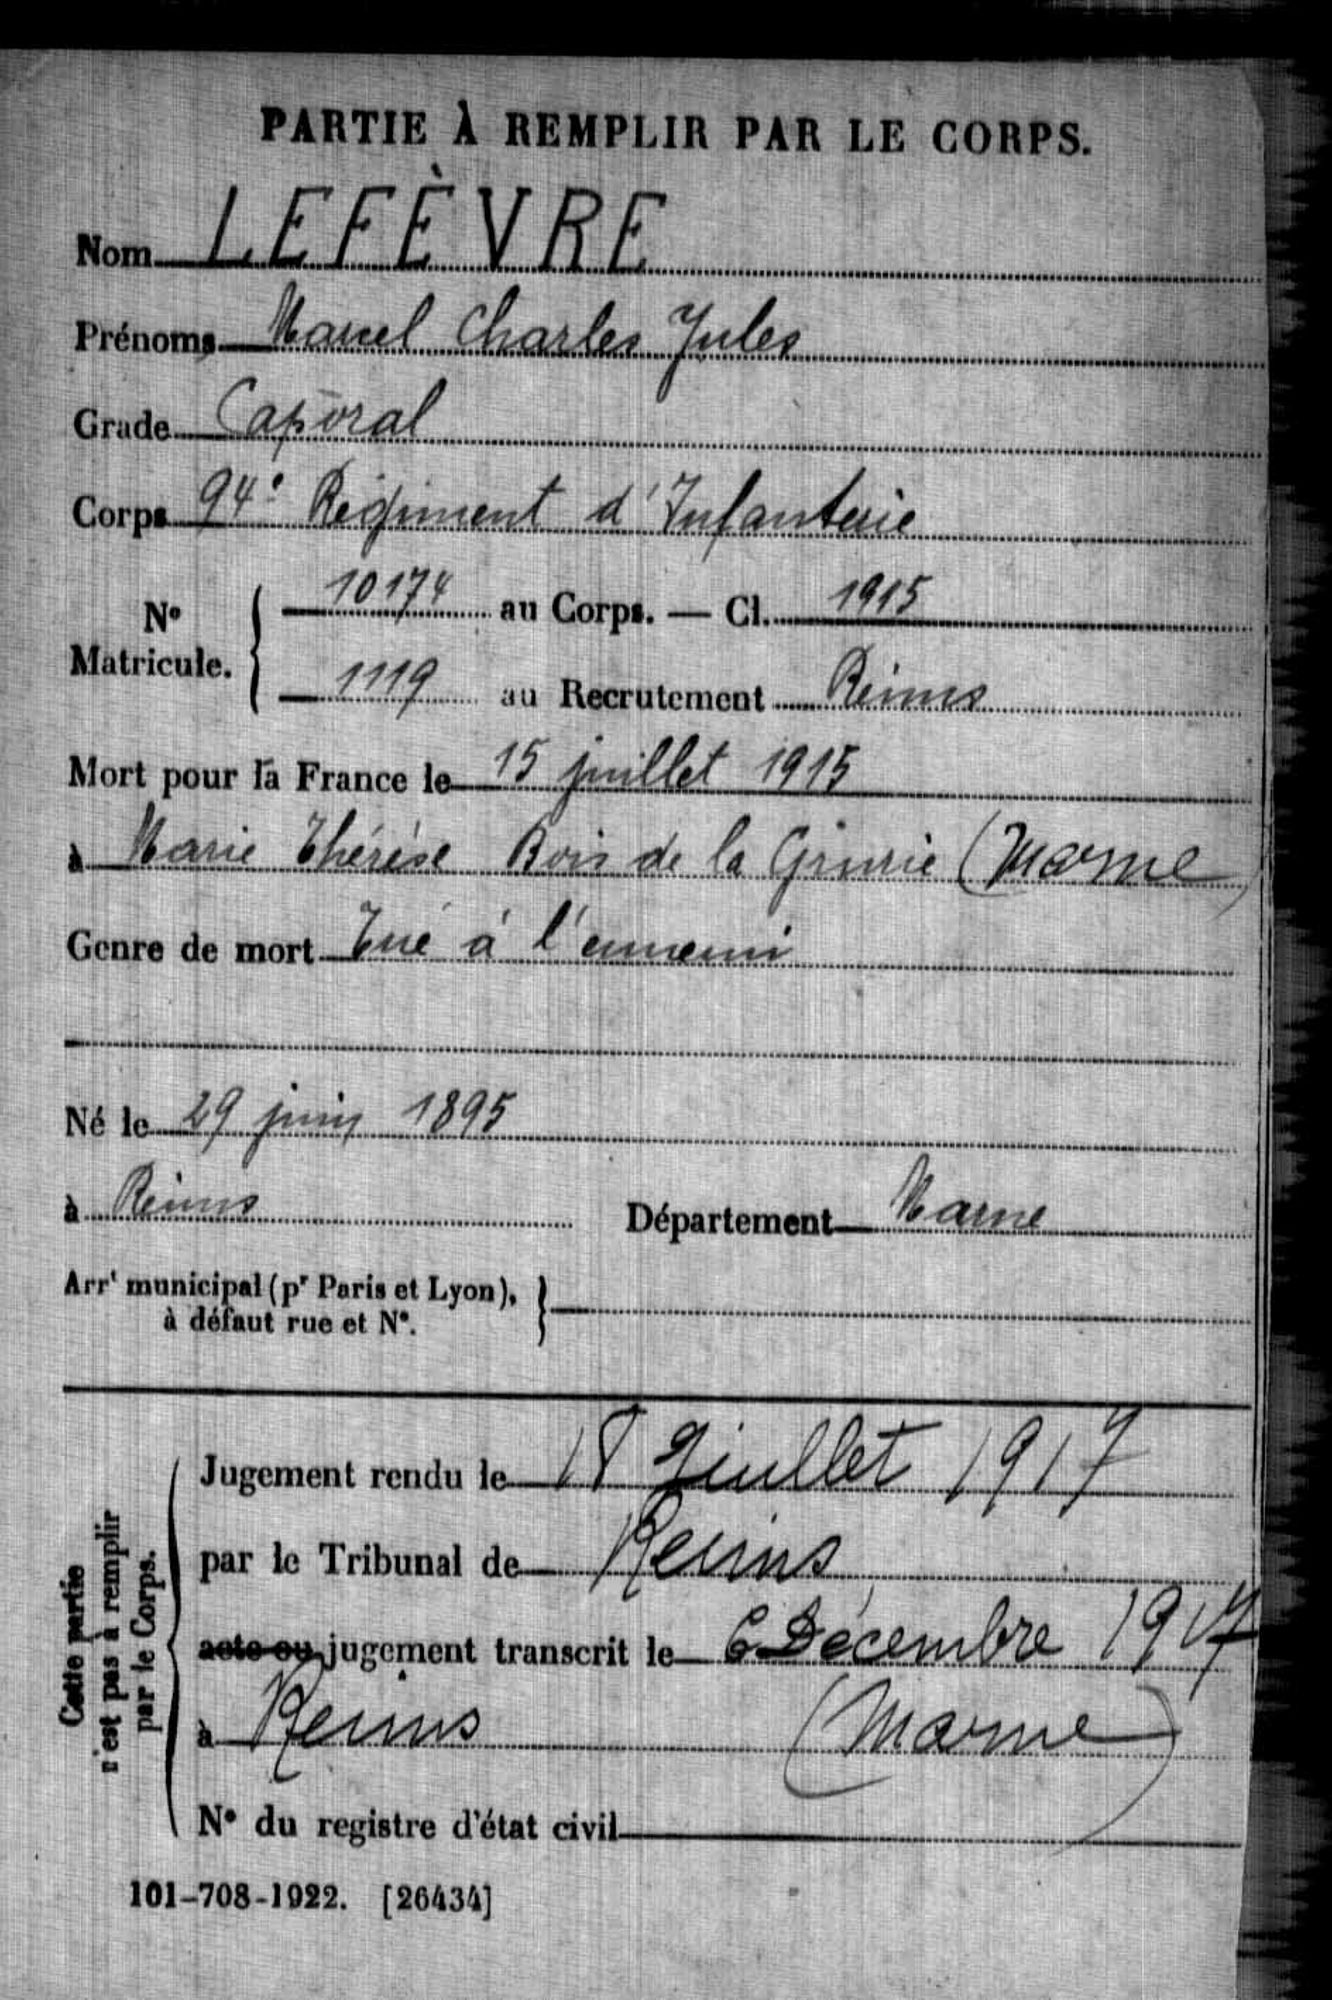 PARTIE À REMPLIR PAR LE CORPS.
Nom LEFÈVRE
Prénoms Marcel Charles Jules
Grade Caporal
Corps 94e Régiment d'Infanterie
No Matricule. { 10174 au Corps. — Cl. 1915
1119 au Recrutement Reims
Mort pour la France le 15 juillet 1915
à Marie Thérèse Bois de la Grurie (Marne)
Genre de mort Tué à l'ennemi
Né le 29 juin 1895
à Reims Département Marne
Arrt municipal (pr Paris et Lyon), }
à défaut rue et No.
Cette partie
n'est pas à remplir
par le Corps.
Jugement rendu le 18 Juillet 1917
par le Tribunal de Reims
acte ou jugement transcrit le 6 Décembre 1917
à Reims (Marne)
No du registre d'état civil
101-708-1922. [26434]